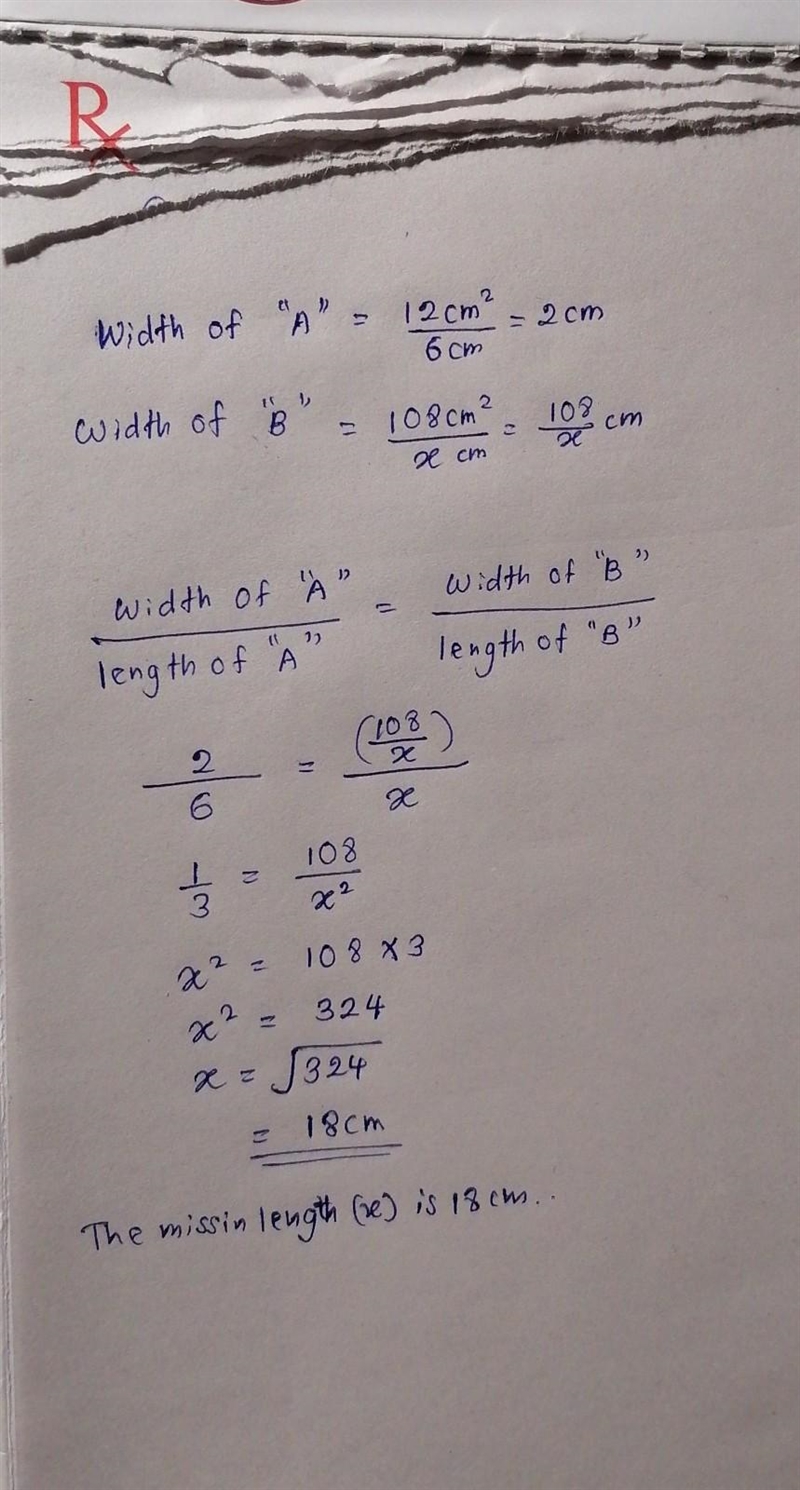 Rx
Width of "A" = 12cm²/6cm = 2cm
Width of "B" = 108cm²/x cm = 108/x cm
Width of "A"/length of "A" = Width of "B"/length of "B"
2/6 = (108/x)/x
1/3 = 108/x²
x² = 108 × 3
x² = 324
x = √324
= 18cm
The missin length (x) is 18cm..